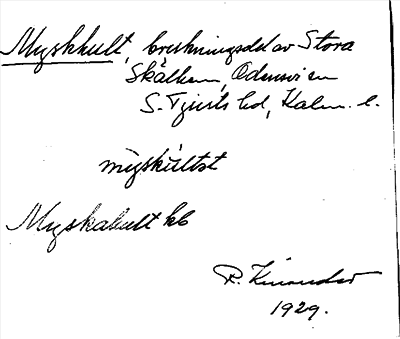 Myskhult, brukningsdel av Stora
Skälhem, Odensvi sn
S. Tjusts hd, Kalm. l.
mỳskùltst
Myskahult kb
R. Kinander
1929.